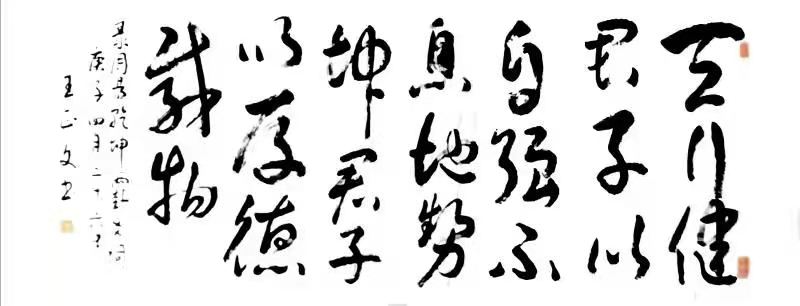 天行健
君子以
自强不
息地势
坤君子
以厚德
载物
录周易乾坤卦
庚子四月二十六日
王正文书